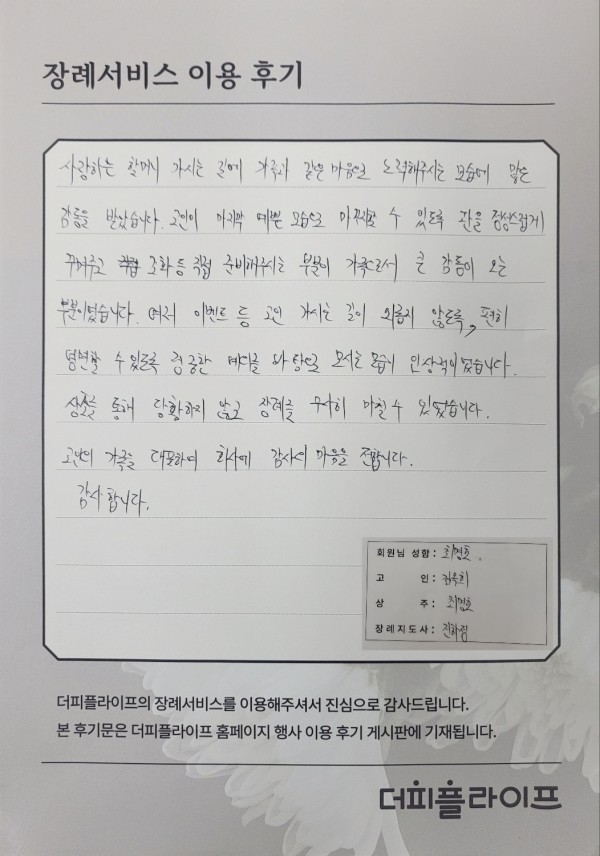 장례서비스 이용 후기
사랑하는 할머니 가시는 길에 가족과 같은 마음으로 노력해주시는 모습에 많은
감동을 받았습니다. 고인이 마지막 예쁜 모습으로 마무리할 수 있도록 관을 정성스럽게
꾸며주고 조화 등 직접 준비해주시는 부분이 가족으로서 큰 감동이 오는
부분이었습니다. 여러 이벤트 등 고인 가시는 길이 외롭지 않도록, 편히
영면할 수 있도록 정중한 예의를 바탕으로 모시는 모습이 인상적이었습니다.
상조를 통해 당황하지 않고 장례를 무사히 마칠 수 있었습니다.
고인의 가족을 대표하여 회사에 감사의 마음을 전합니다.
감사합니다.
회원님 성함 : 최명호.
고 인 :
상 주 : 최명호
장례지도사 :
더피플라이프의 장례서비스를 이용해주셔서 진심으로 감사드립니다.
본 후기문은 더피플라이프 홈페이지 행사 이용 후기 게시판에 기재됩니다.
더피플라이프